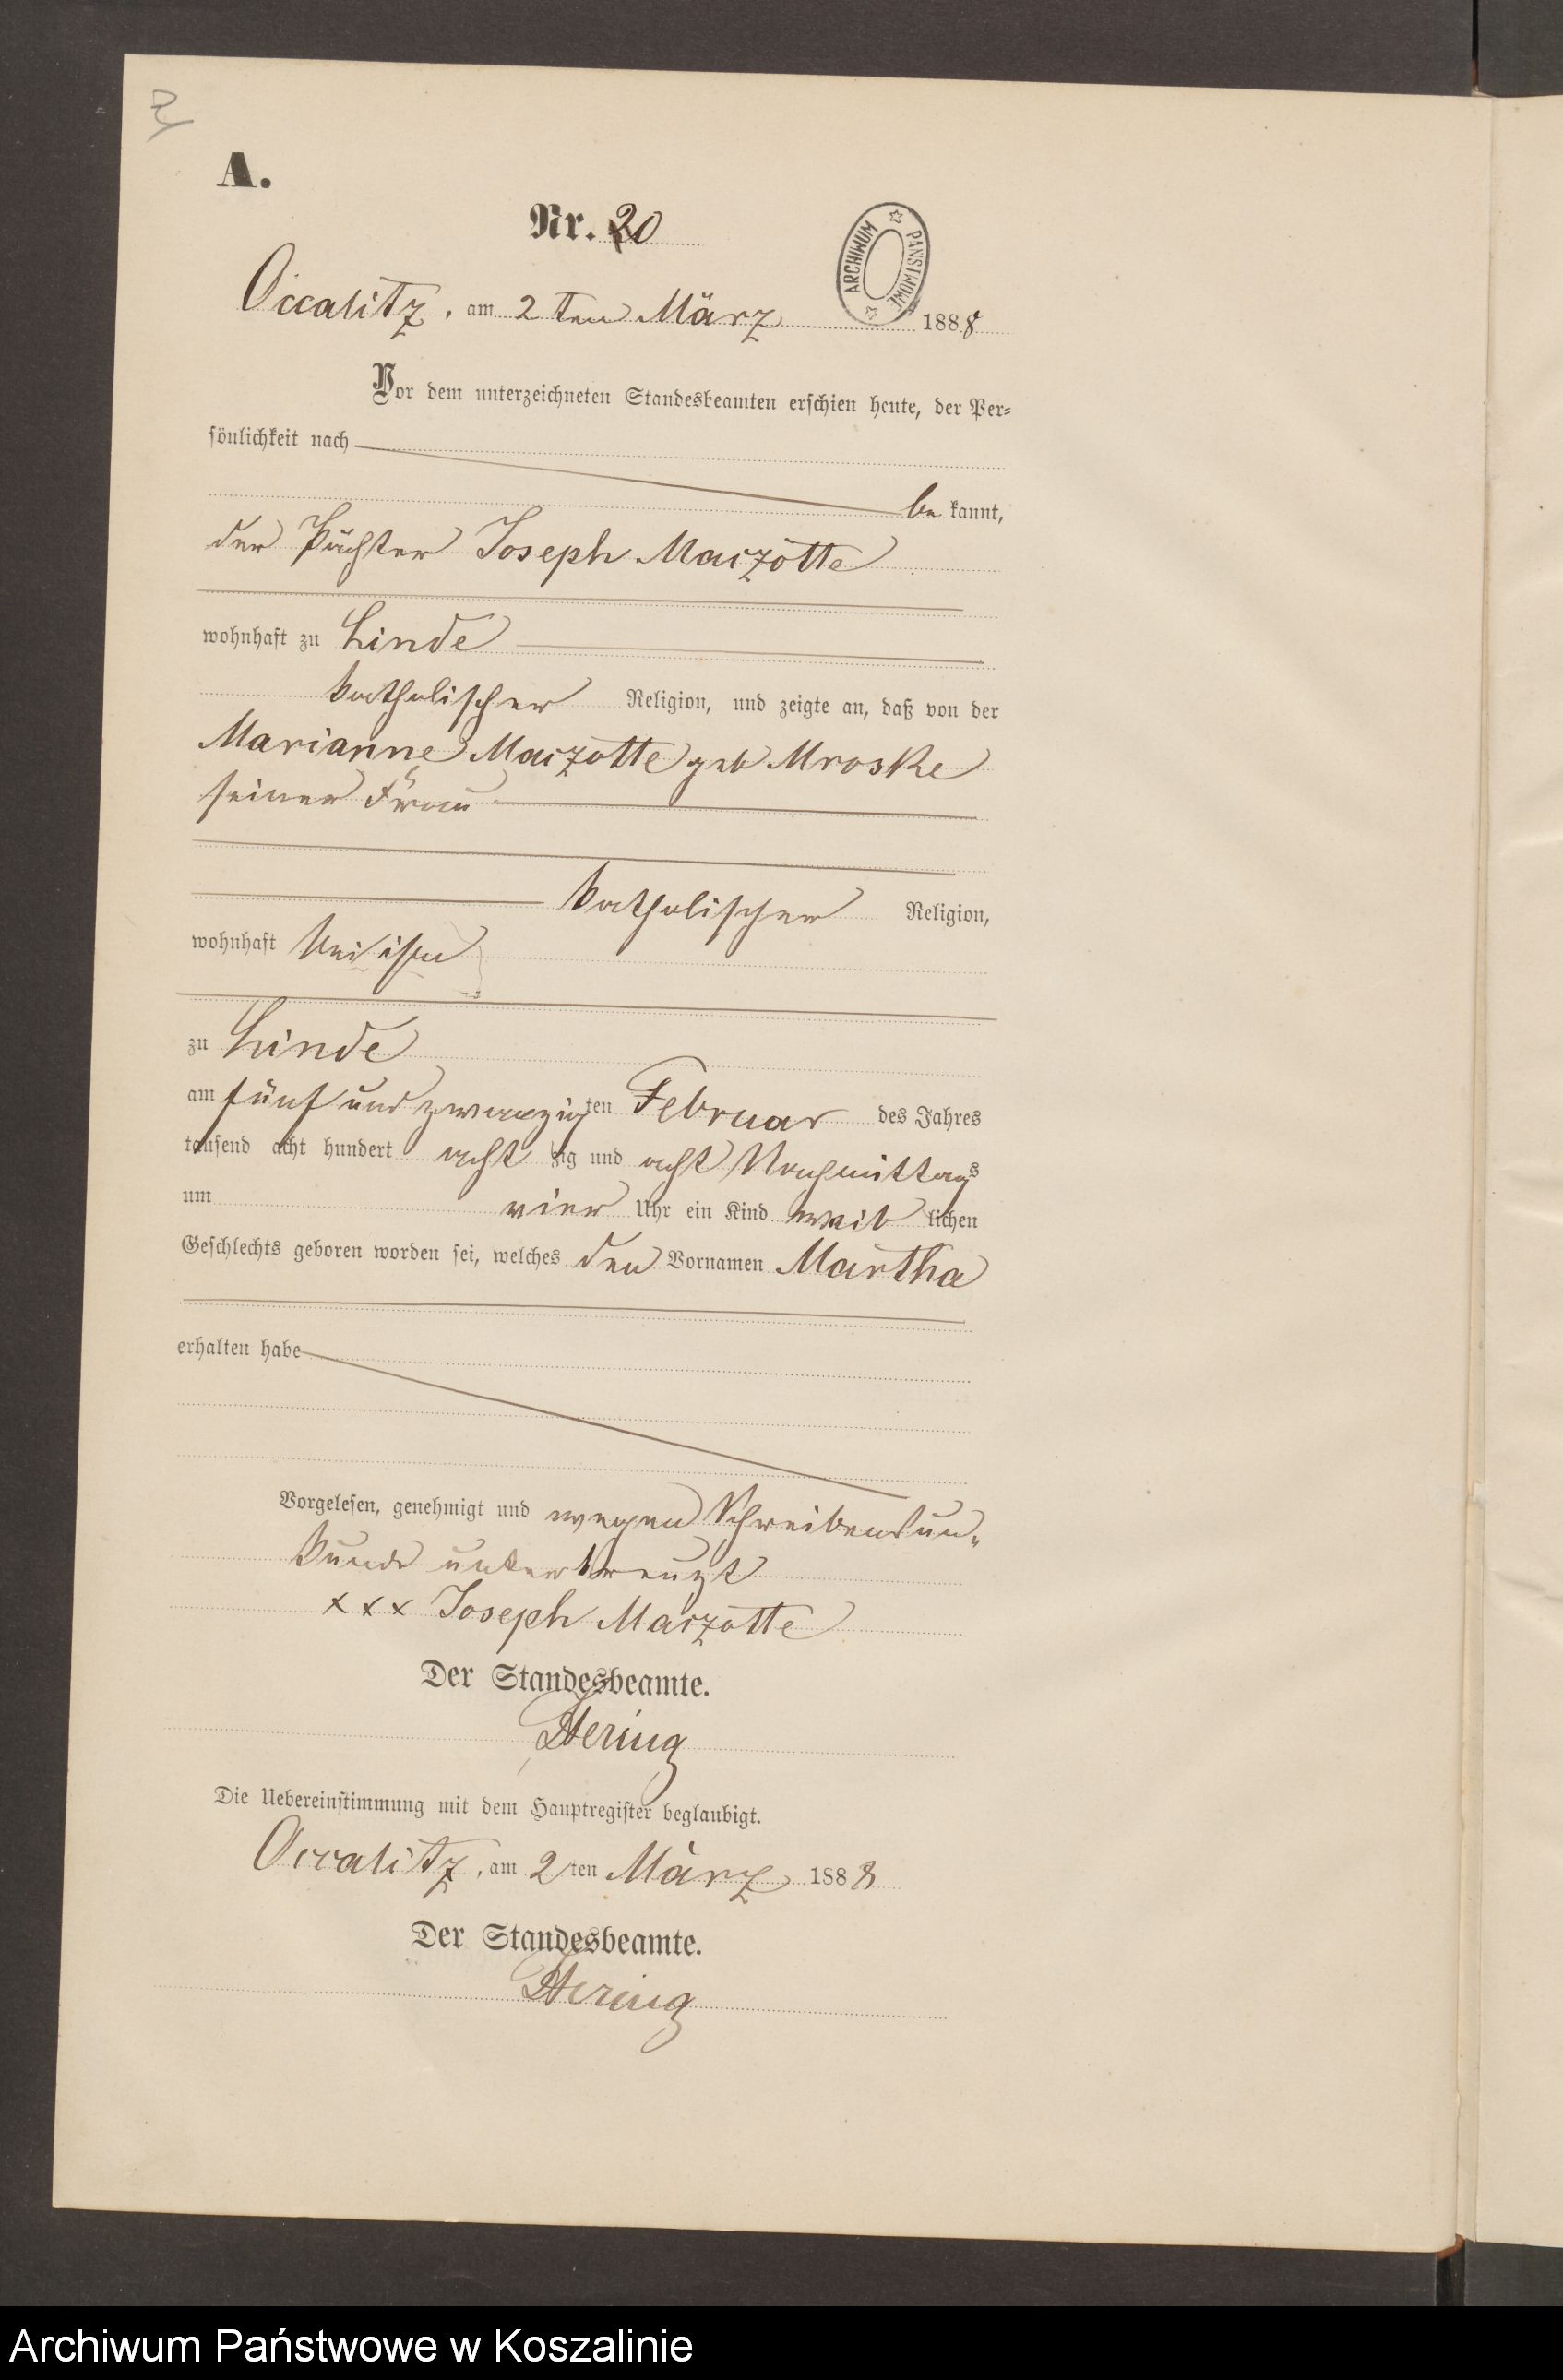 A.
Nr. 20
ARCHIWUM PAŃSTWOWE
Occalitz, am 2 ten März 1888
Vor dem unterzeichneten Standesbeamten erschien heute, der Per-
sönlichkeit nach
be kannt,
der Pächter Joseph Maizotte
wohnhaft zu Linde
katholischer Religion, und zeigte an, daß von der
Marianne Maizotte geb Mroske
seiner Frau
katholischer Religion,
wohnhaft bei ihm
zu Linde
am fünf und zwanzig ten Februar des Jahres
tausend acht hundert acht zig und acht Nachmittags
um vier Uhr ein Kind weib lichen
Geschlechts geboren worden sei, welches den Vornamen Martha
erhalten habe
Vorgelesen, genehmigt und wegen Schreibensun-
kunde unterkreuzt
xxx Joseph Maizotte
Der Standesbeamte.
Hering
Die Uebereinstimmung mit dem Hauptregister beglaubigt.
Occalitz, am 2 ten März 1888
Der Standesbeamte.
Hering
Archiwum Państwowe w Koszalinie